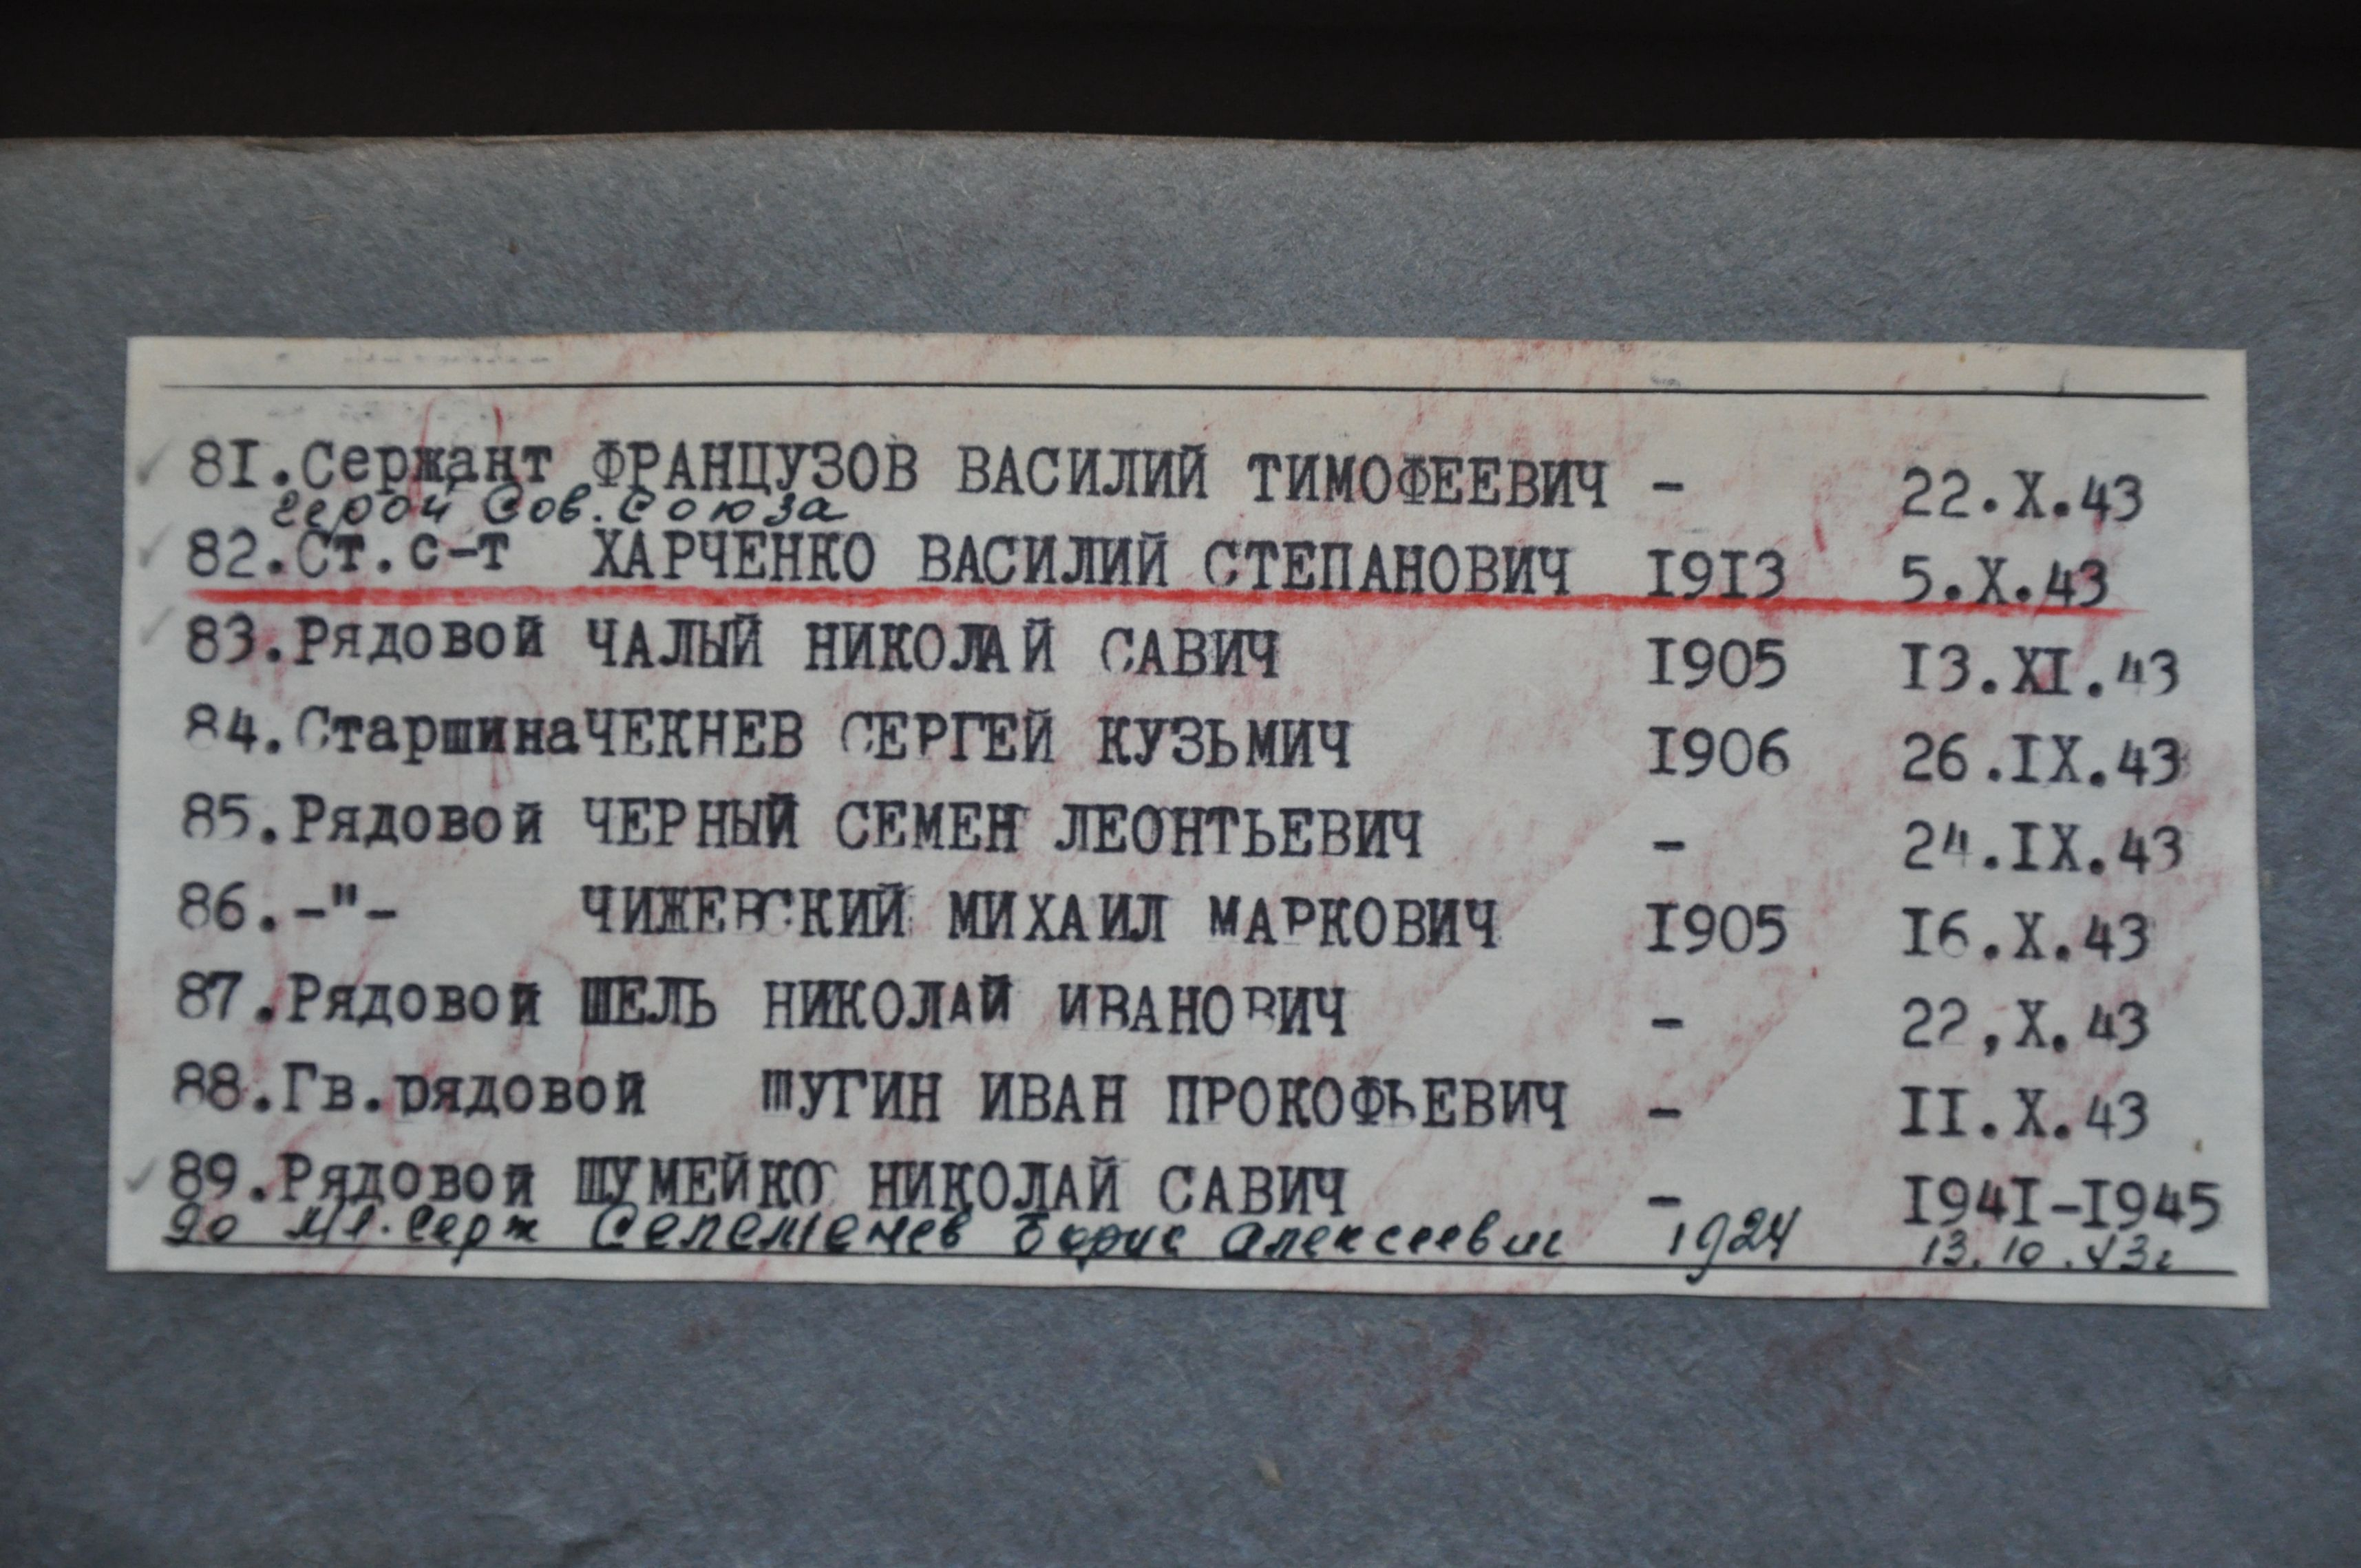 81.Сержант ФРАНЦУЗОВ ВАСИЛИЙ ТИМОФЕЕВИЧ - 22.X.43
герой Сов. Союза
82.Ст.с-т ХАРЧЕНКО ВАСИЛИЙ СТЕПАНОВИЧ 1913 5.X.43
83.Рядовой ЧАЛЫЙ НИКОЛАЙ САВИЧ 1905 13.XI.43
84.Старшина ЧЕКНЕВ СЕРГЕЙ КУЗЬМИЧ 1906 26.IX.43
85.Рядовой ЧЕРНЫЙ СЕМЕН ЛЕОНТЬЕВИЧ - 24.IX.43
86.-"- ЧИЖЕВСКИЙ МИХАИЛ МАРКОВИЧ 1905 16.X.43
87.Рядовой ШЕЛЬ НИКОЛАЙ ИВАНОВИЧ - 22,X.43
88.Гв.рядовой ШУГИН ИВАН ПРОКОФЬЕВИЧ - 11.X.43
89.Рядовой ШУМЕЙКО НИКОЛАЙ САВИЧ - 1941-1945
90 мл. серж Борис Алексеевич 1924 13.10.43г